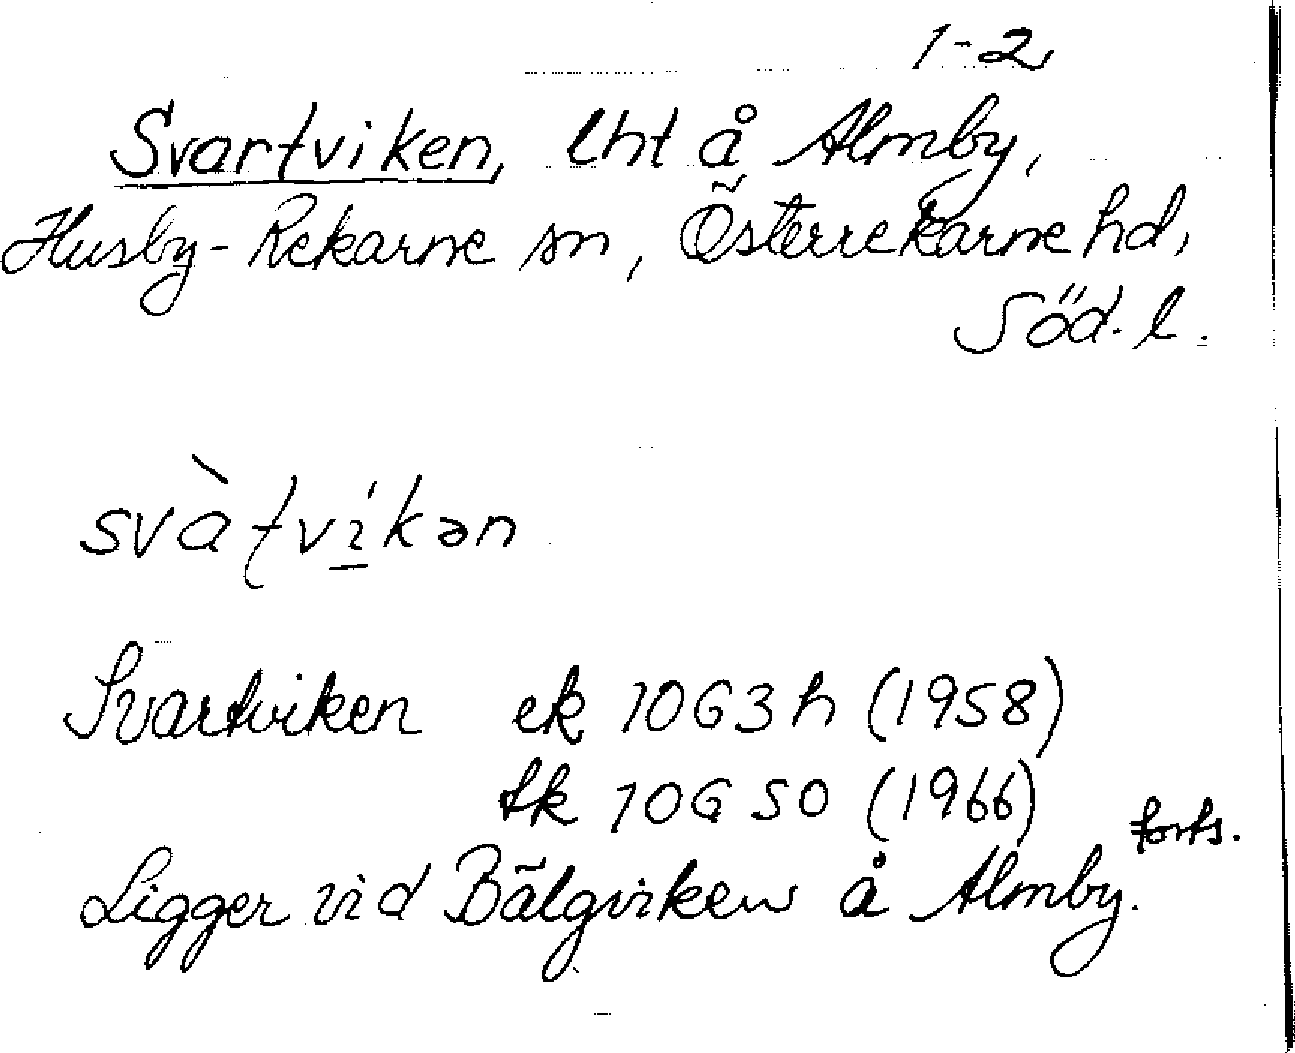 1-2
Svartviken, lht å Almby,
Husby-Rekarne sn, Österrekarne hd,
Söd. l.
svàtví̲kən
Svartviken ek 10G3h (1958)
tk 10G SO (1966)
forts.
Ligger vid Bälgviken å Almby.